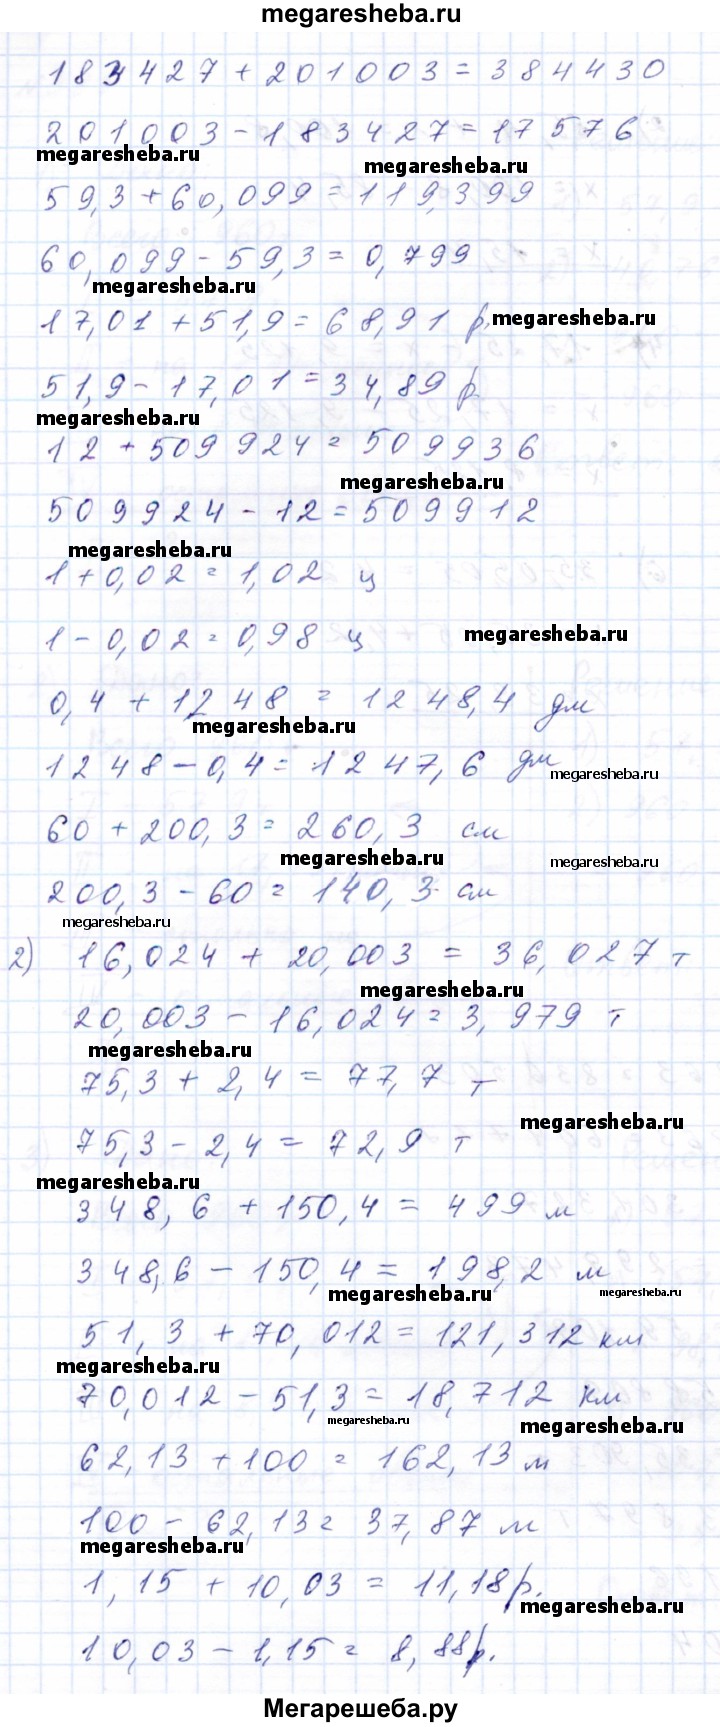 megaresheba.ru
183427 + 201003 = 384430
201003 - 183427 = 17576
megaresheba.ru
megaresheba.ru
59,3 + 60,099 = 119,399
60,099 - 59,3 = 0,799
megaresheba.ru
17,01 + 51,9 = 68,91 р.
megaresheba.ru
51,9 - 17,01 = 34,89 р
megaresheba.ru
12 + 509924 = 509936
megaresheba.ru
509924 - 12 = 509912
megaresheba.ru
1 + 0,02 = 1,02 ц
1 - 0,02 = 0,98 ц
megaresheba.ru
0,4 + 1248 = 1248,4 дм
megaresheba.ru
1248 - 0,4 = 1247,6 дм
megaresheba.ru
60 + 200,3 = 260,3 см
megaresheba.ru
megaresheba.ru
200,3 - 60 = 140,3 см
megaresheba.ru
2) 16,024 + 20,003 = 36,027 т
megaresheba.ru
20,003 - 16,024 = 3,979 т
megaresheba.ru
75,3 + 2,4 = 77,7 т
megaresheba.ru
75,3 - 2,4 = 72,9 т
megaresheba.ru
348,6 + 150,4 = 499 м
348,6 - 150,4 = 198,2 м
megaresheba.ru
megaresheba.ru
51,3 + 70,012 = 121,312 км
megaresheba.ru
70,012 - 51,3 = 18,712 км
megaresheba.ru
megaresheba.ru
62,13 + 100 = 162,13 м
100 - 62,13 = 37,87 м
megaresheba.ru
1,15 + 10,03 = 11,18 р.
megaresheba.ru
10,03 - 1,15 = 8,88 р.
Мегарешеба.ру